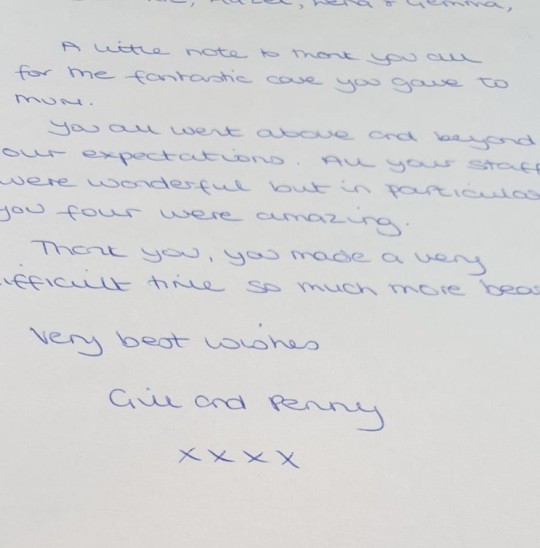 Hazel, Lena & Gemma,
A little note to thank you all
for the fantastic care you gave to
mum.
You all went above and beyond
our expectations. All your staff
were wonderful but in particular
you four were amazing.
Thank you, you made a very
difficult time so much more bear
Very best wishes
Gill and Penny
xxxx